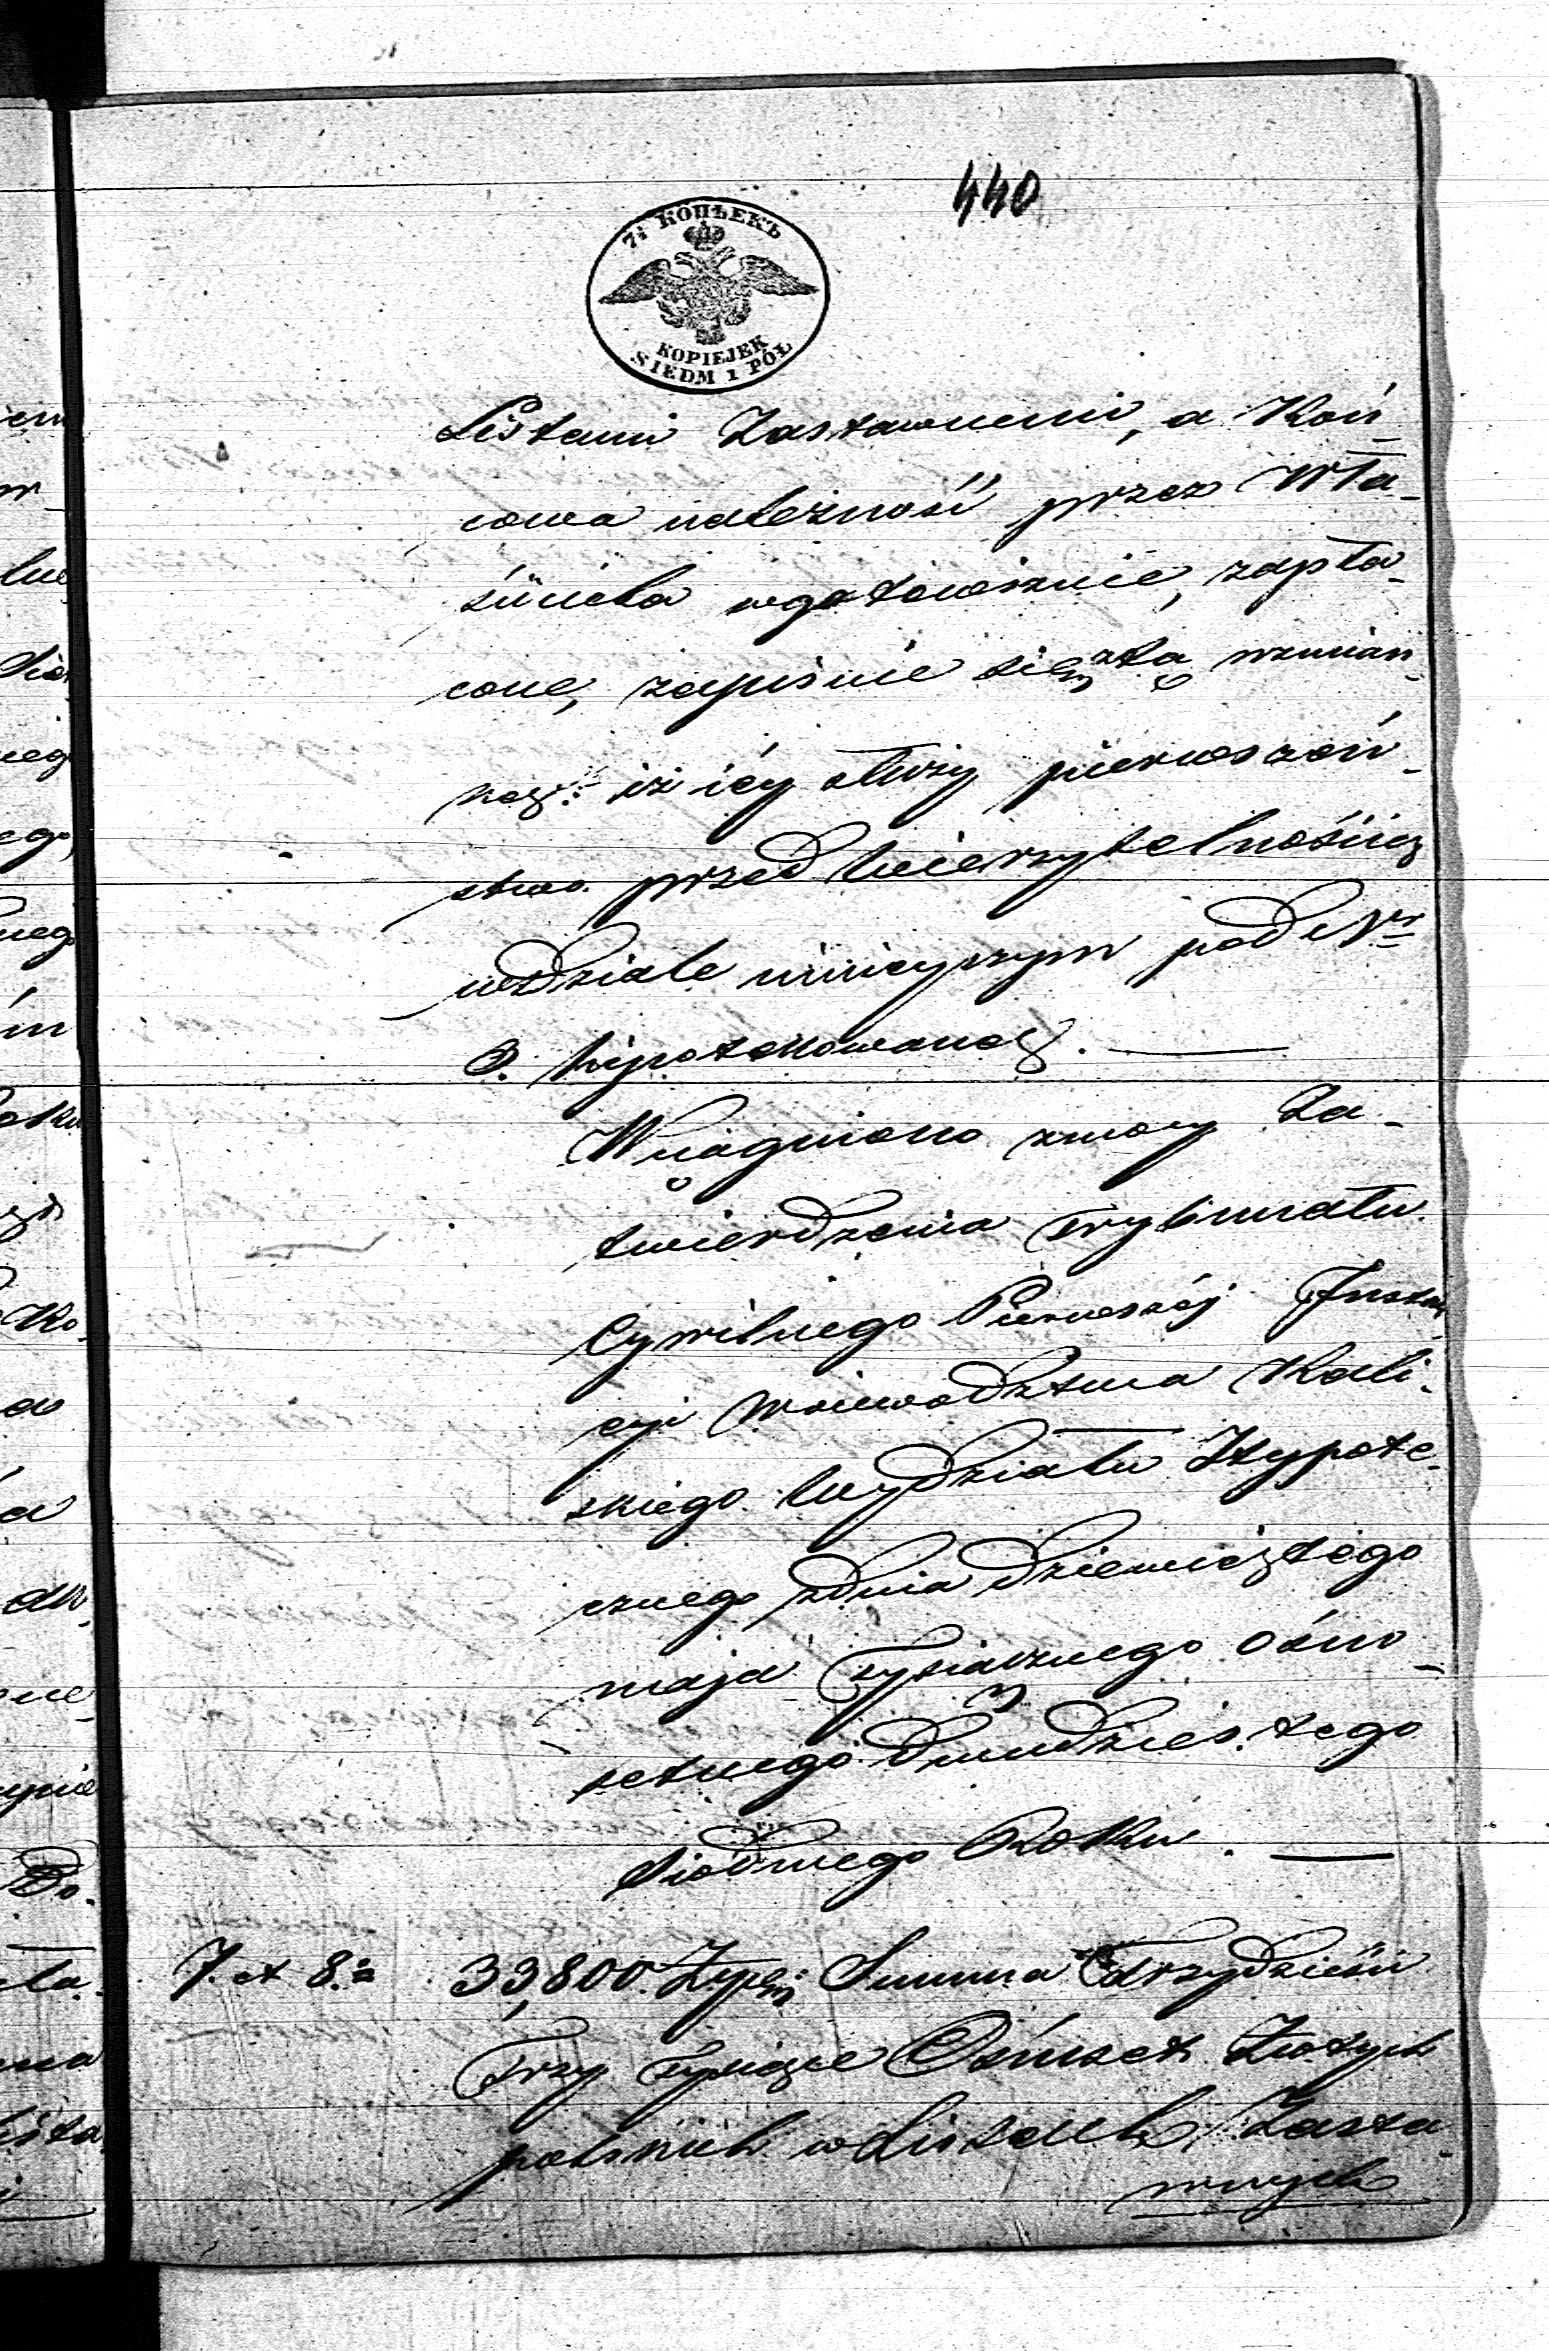 440
7½ КОПѢЕКЪ
KOPIEJEK
SIEDM I PÓŁ
Listami Zastawnemi, a Koń-
cowa należność przez Wła-
ściciela wgotowiznie, zapła-
cone, zapisuie się ztą wzmian-
ką: iż iéy służy pierwszeń-
stwo przed Wierzytelnością
wdziale ninieyszym pod Nr
3. hipotekowaną. —
Wciągniono zmocy Za-
twierdzenia Trybunału
Cywilnego Pierwszéj Instan-
cyi Woiewodztwa Kali-
skiego Wydziału Hypote-
cznego zdnia dziewiątego
maja Tysiącznego ośm-
setnego dwudziestego
siódmego Roku. —
7. et 8. 33,800. Złp: Summa Trzydzieści
Trzy Tysiące Ośmset Złotych
polskich wListach Zasta-
wnych
em
lue
nego
ego,
nego
oku
Ko-
a
Do.
ła.